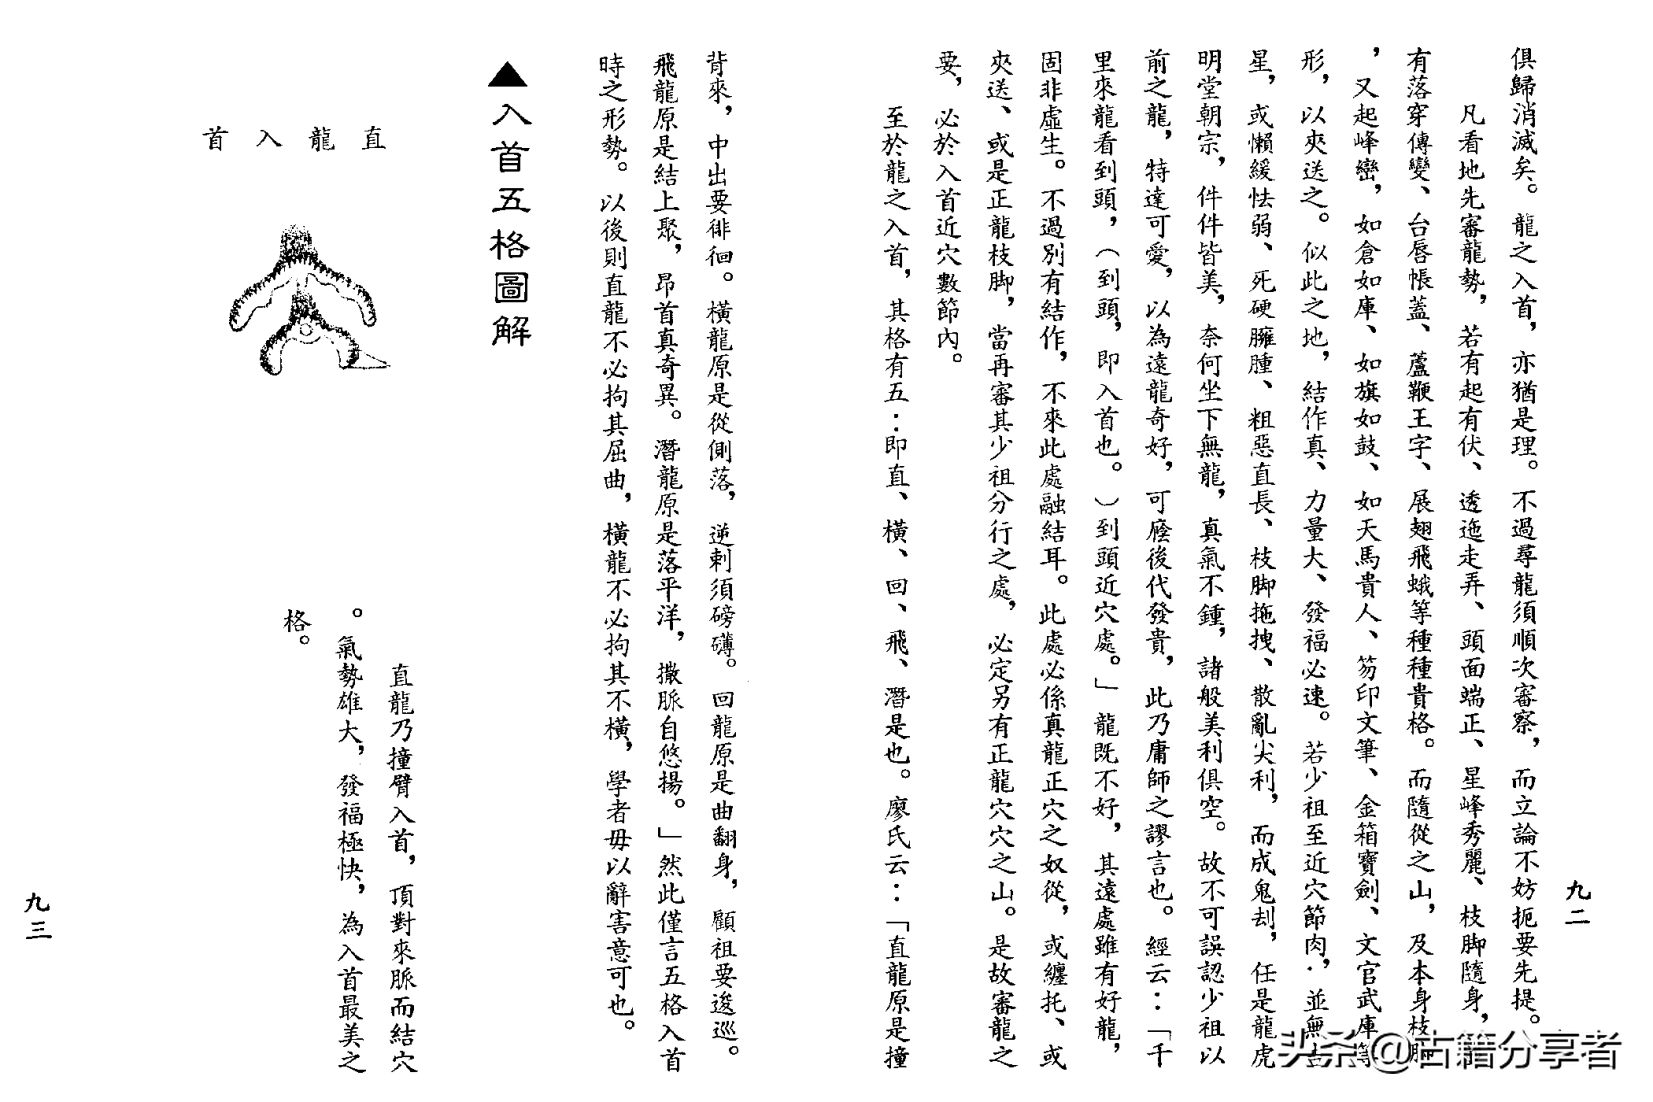 俱歸消滅矣。龍之入首，亦猶是理。不過尋龍須順次審察，而立論不妨扼要先提。
凡看地先審龍勢，若有起有伏、透迤走弄、頭面端正、星峰秀麗、枝脚隨身，
有落穿傳變、台唇帳蓋、蘆鞭王字、展翅飛蛾等種種貴格。而隨從之山，及本身枝脚
，又起峰巒，如倉如庫、如旗如鼓、如天馬貴人、笏印文筆、金箱寶劍、文官武庫等
形，以夾送之。似此之地，結作真、力量大、發福必速。若少祖至近穴節肉，並無
星，或懶緩怯弱、死硬臃腫、粗惡直長、枝脚拖拽、散亂尖利，而成鬼刦，任是龍虎
明堂朝宗，件件皆美，奈何坐下無龍，真氣不鍾，諸般美利俱空。故不可誤認少祖以
前之龍，特達可愛，以為遠龍奇好，可廕後代發貴，此乃庸師之謬言也。經云：「千
里來龍看到頭，（到頭，即入首也。）到頭近穴處。」龍既不好，其遠處雖有好龍，
固非虛生。不過別有結作，不來此處融結耳。此處必係真龍正穴之奴從，或纏托、或
夾送、或是正龍枝脚，當再審其少祖分行之處，必定另有正龍穴穴之山。是故審龍之
要，必於入首近穴數節內。
至於龍之入首，其格有五：即直、橫、回、飛、潛是也。廖氏云：「直龍原是撞
九二
背來，中出要徘徊。橫龍原是從側落，逆剌須磅礡。回龍原是曲翻身，顧祖要逡巡。
飛龍原是結上聚，昂首真奇異。潛龍原是落平洋，撒脈自悠揚。」然此僅言五格入首
時之形勢。以後則直龍不必拘其屈曲，橫龍不必拘其不橫，學者毋以辭害意可也。
▲入首五格圖解
直龍入首
直龍乃撞臂入首，頂對來脈而結穴
。氣勢雄大，發福極快，為入首最美之
格。
九三
头条@古籍分享者